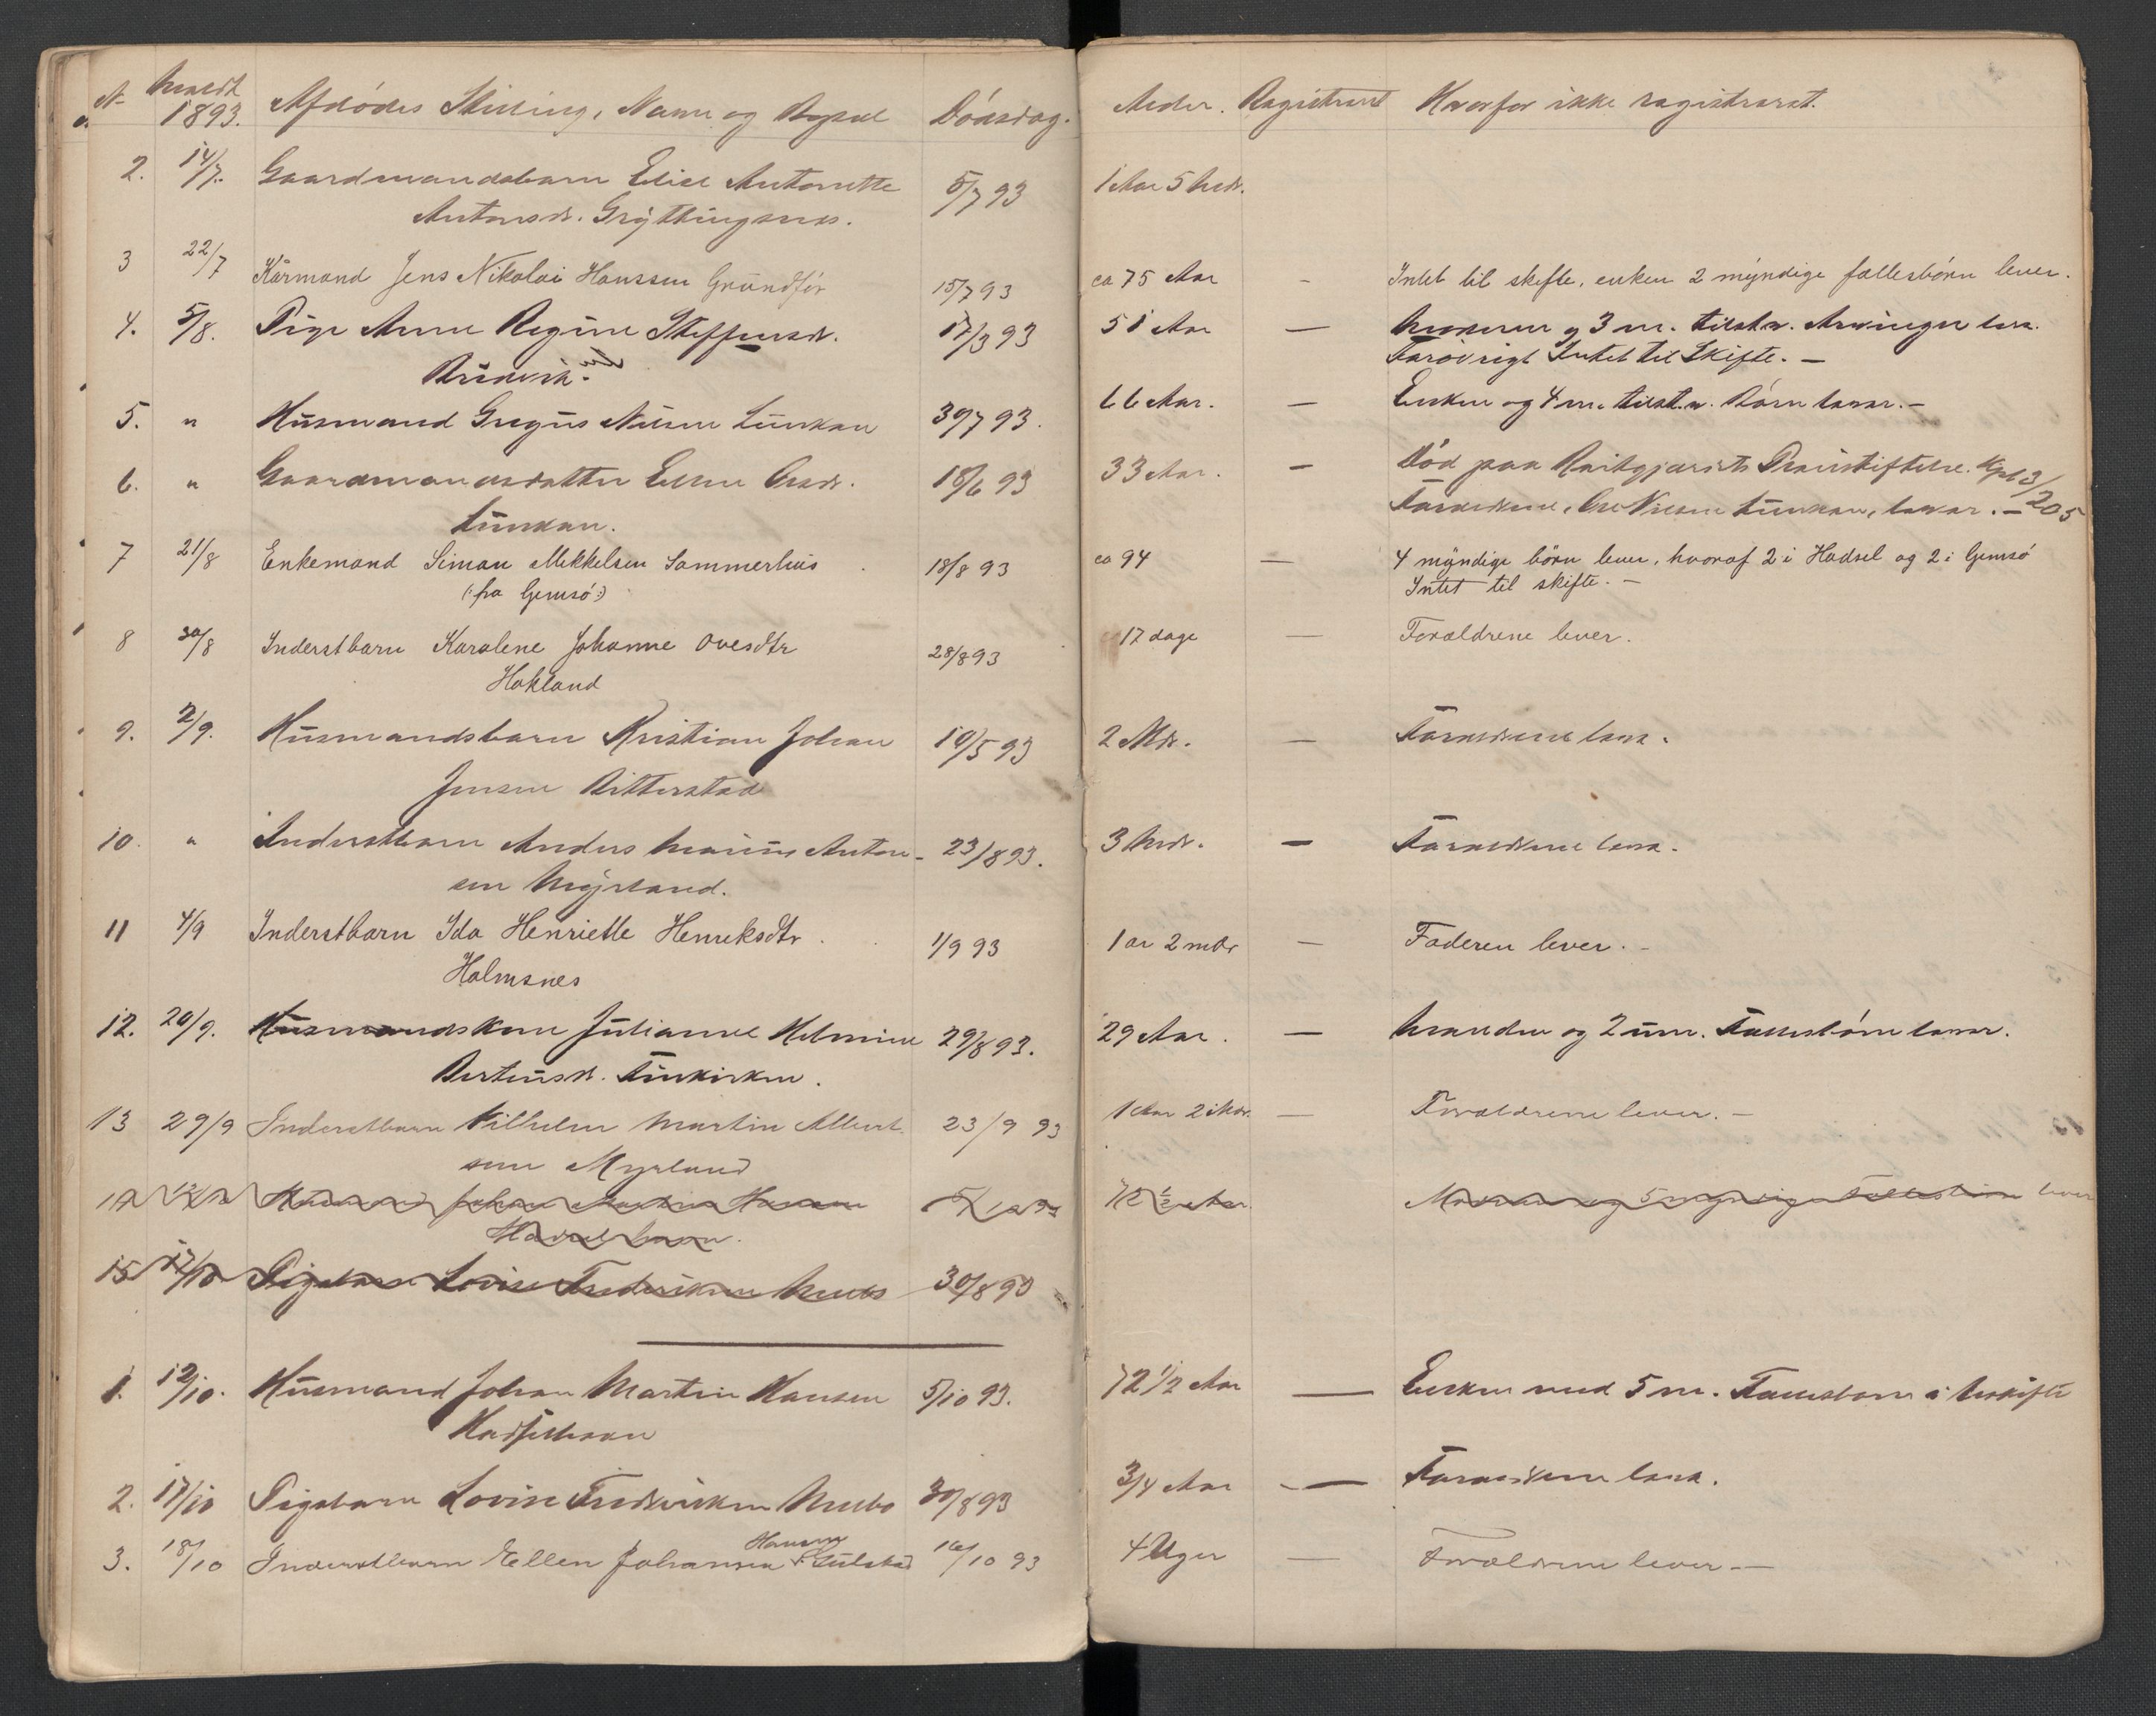 N Meldt 1893. Afdødes Stilling, Navn og Bopæl Dødsdag. Alder. Registrert Hvorfor ikke registreret.
2. 14/7. Gaardmandsbarn Elise Antonette 5/7 93 1 Aar 5 Mdr.
Antonsdr. Grýttingsnes.
3 22/7 Kårmand Jens Nikolai Hanssen Grundfór 15/7 93 ca 75 Aar - Intet til skifte, enken 2 mýndige fællesbórn lever.
4. 5/8. Pige Anne Regine Steffensdr. 17/3 93 51 Aar — Moderen og 3 m. tilstv. Arvinger lever.
Forøvrigt Intet til Skifte. —
5. " Husmand Gregus Nilsen Lunkan 30/7 93. 66 Aar. — Enken og 4 m. tilst.v. Børn lever. —
6. " Gaardmandsdatter Ellen Olesdr. 18/6 93 33 Aar. — Død paa Reitgjerdets Pleiestiftelse. Kpt 3/205
Lunkan. Forældrene, Ole Nilsen Lunkan, lever. —
7 21/8 Enkemand Simon Mikkelsen Sommerhus 18/8 93 ca 94 — 4 mýndige börn lever, hvoraf 2 i Hadsel og 2 i Gimsó
(: fra Gimsó :) Intet til skifte. —
8 30/8 Inderstbarn Karolene Johanne Ovesdtr 28/8 93 17 dage — Forældrene lever.
Hokland
9. 2/9. Husmandsbarn Kristian Johan 10/5 93 2 Mdr. — Forældrene lever.
Jensen Bitterstad
10. " Inderstbarn Anders Marius Anton- 23/8 93. 3 Mdr. — Forældrene lever.
sen Mýrland.
11 4/9 Inderstbarn Ida Henriette Henriksdtr 1/9 93 1 ar 2 mdr — Faderen lever. -
Holmsnes
12. 20/9. Husmandskone Julianne Helmine 29/8 93. 29 Aar. — Manden og 2 um. Fællesbórn lever.
Bertheusdr. Finkirken.
13 29/9 Inderstbarn Vilhelm Martin Albert- 23/9 93 1 Aar 2 Mdr. — Forældrene lever. —
sen Myrland
Johan Martin Hansen 72 1/2 Aar. og 5 myndige Fællesbörn lever
15 17/10 Pigebarn Lovise Frederiksen Melbo 30/8 93
1. 12/10. Husmand Johan Martin Hansen 5/10 93. 72 1/2 Aar — Enken med 5 m. Fællesbørn i Uskifte
Hadselhavn
2. 17/10 Pigebarn Lovise Fredriksen Melbo 30/8 93 3/4 Aar — Forældrene lever.
3. 18/10 Inderstbarn Ellen Johansen Hansen Gulstad 16/10 93 4 Uger — Forældrene lever —